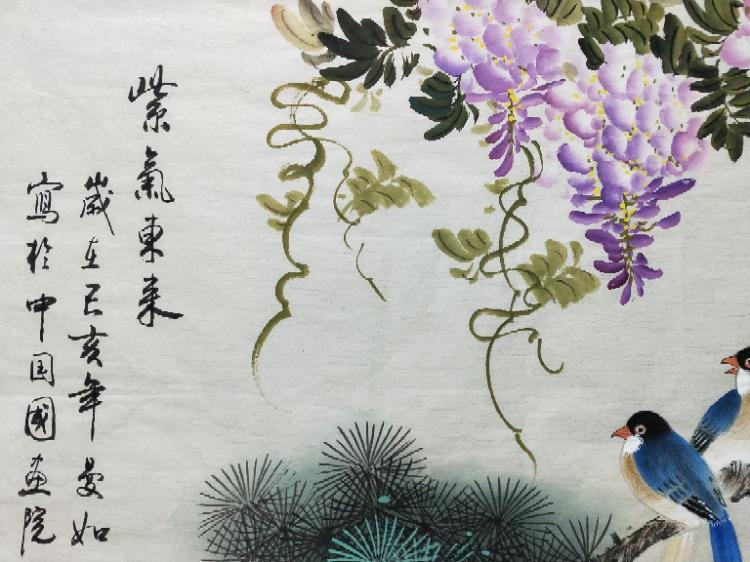 紫氣東来
歲在己亥年曼如
寫於中国國画院